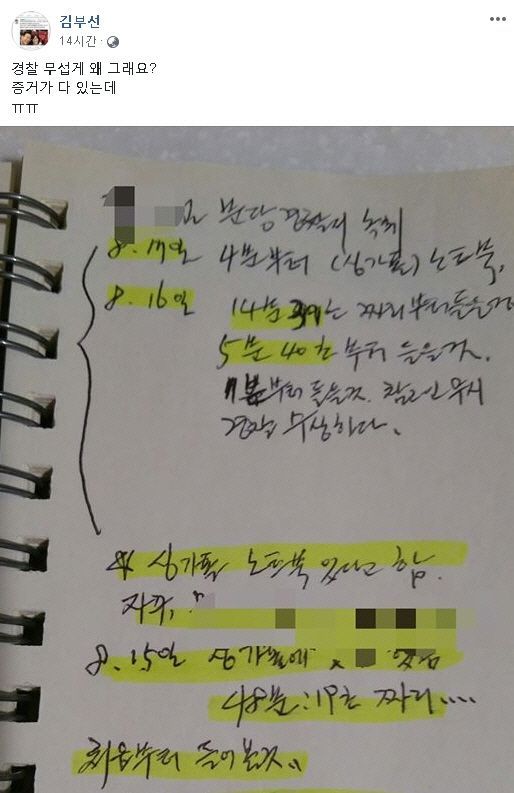 김부선
14시간
경찰 무섭게 왜 그래요?
증거가 다 있는데
ㅠㅠ
분당경찰서 녹취
8. 17일 4분부터 (싱가폴) 노트북,
8. 16일 14분 39초 짜리부터 들을것
5분 40초 부터 들을것.
부터 들을것.
경찰 수상하다.
싱가폴 노트북 있다고 함.
8. 15일 싱가폴에 있음
48분:19초 짜리....
처음부터 들어볼것..